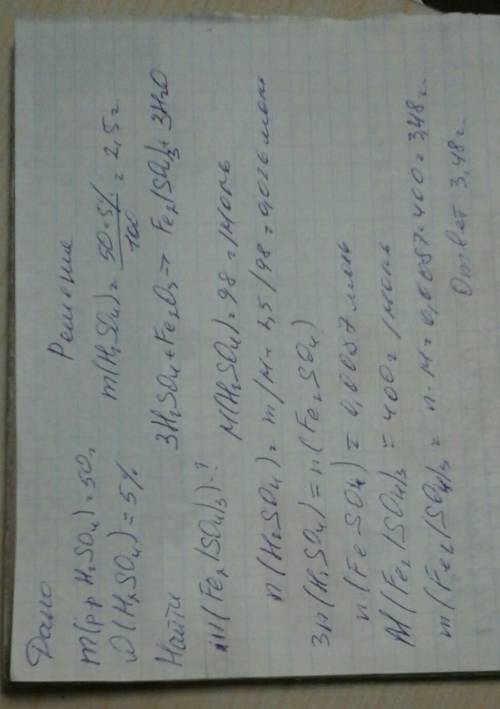 Дано
m(р-р H₂SO₄) = 50г
ω(H₂SO₄) = 5%
Найти
m(Fe₂(SO₄)₃)-?
Решение
m(H₂SO₄) = 50·5%/100 = 2,5г
3H₂SO₄ + Fe₂O₃ → Fe₂(SO₄)₃ + 3H₂O
M(H₂SO₄) = 98г/моль
n(H₂SO₄) = m/M = 2,5/98 = 0,026 моль
3n(H₂SO₄) = n(Fe₂SO₄)
n(FeSO₄) = 0,0087 моль
M(Fe₂(SO₄)₃ = 400г/моль
m(Fe₂(SO₄)₃ = n·M = 0,0087·400 = 3,48г.
Ответ 3,48г